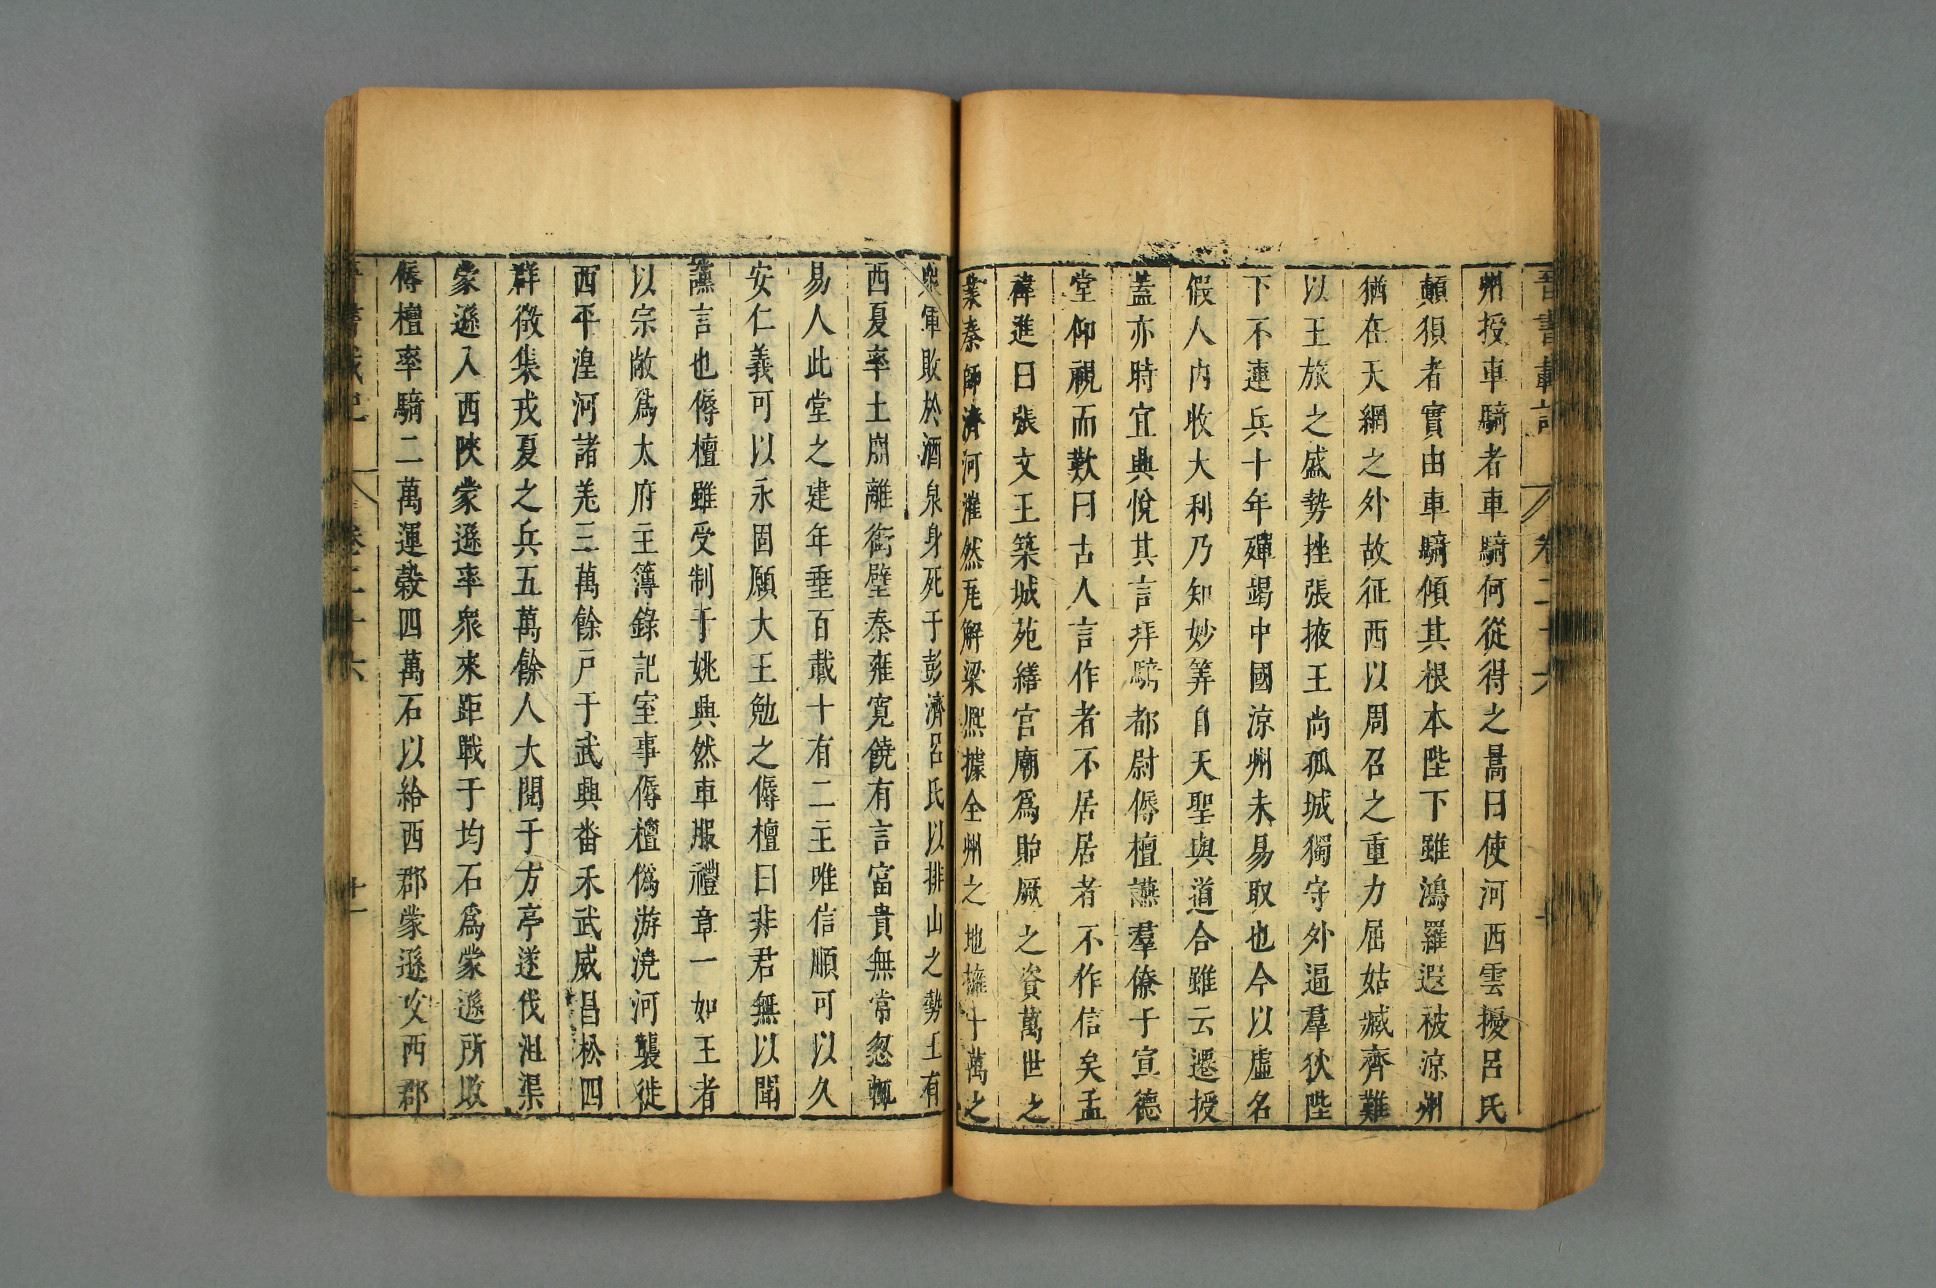 晉書載記 卷二十六
州授車騎者車騎何從得之暠曰使河西雲擾呂氏
顛狽者實由車騎傾其根本陛下雖鴻羅遐被涼州
猶在天網之外故征西以周召之重力屈姑臧齊難
以王旅之盛勢挫張掖王尚孤城獨守外逼羣狄陛
下不連兵十年殫竭中國涼州未易取也今以虛名
假人內收大利乃知妙筭自天聖與道合雖云遷授
蓋亦時宜興悅其言拜騎都尉傉檀讌羣僚于宣德
堂仰視而歎曰古人言作者不居居者不作信矣孟
禕進曰張文王築城苑繕宮廟爲貽厥之資萬世之
業秦師濟河漼然瓦解梁熙據全州之地擁十萬之
衆軍敗於酒泉身死于彭濟呂氏以排山之勢王有
西夏率土崩離銜璧秦雍寬饒有言富貴無常忽輒
易人此堂之建年垂百載十有二主唯信順可以久
安仁義可以永固願大王勉之傉檀曰非君無以聞
讜言也傉檀雖受制于姚興然車服禮章一如王者
以宗敞爲太府主簿錄記室事傉檀僞游澆河襲徙
西平湟河諸羌三萬餘戶于武興番禾武威昌松四
群徵集戎夏之兵五萬餘人大閱于方亭遂伐沮渠
蒙遜入西陝蒙遜率衆來距戰于均石爲蒙遜所敗
傉檀率騎二萬運穀四萬石以給西郡蒙遜攻西郡
晉書載記 卷二十六 十一